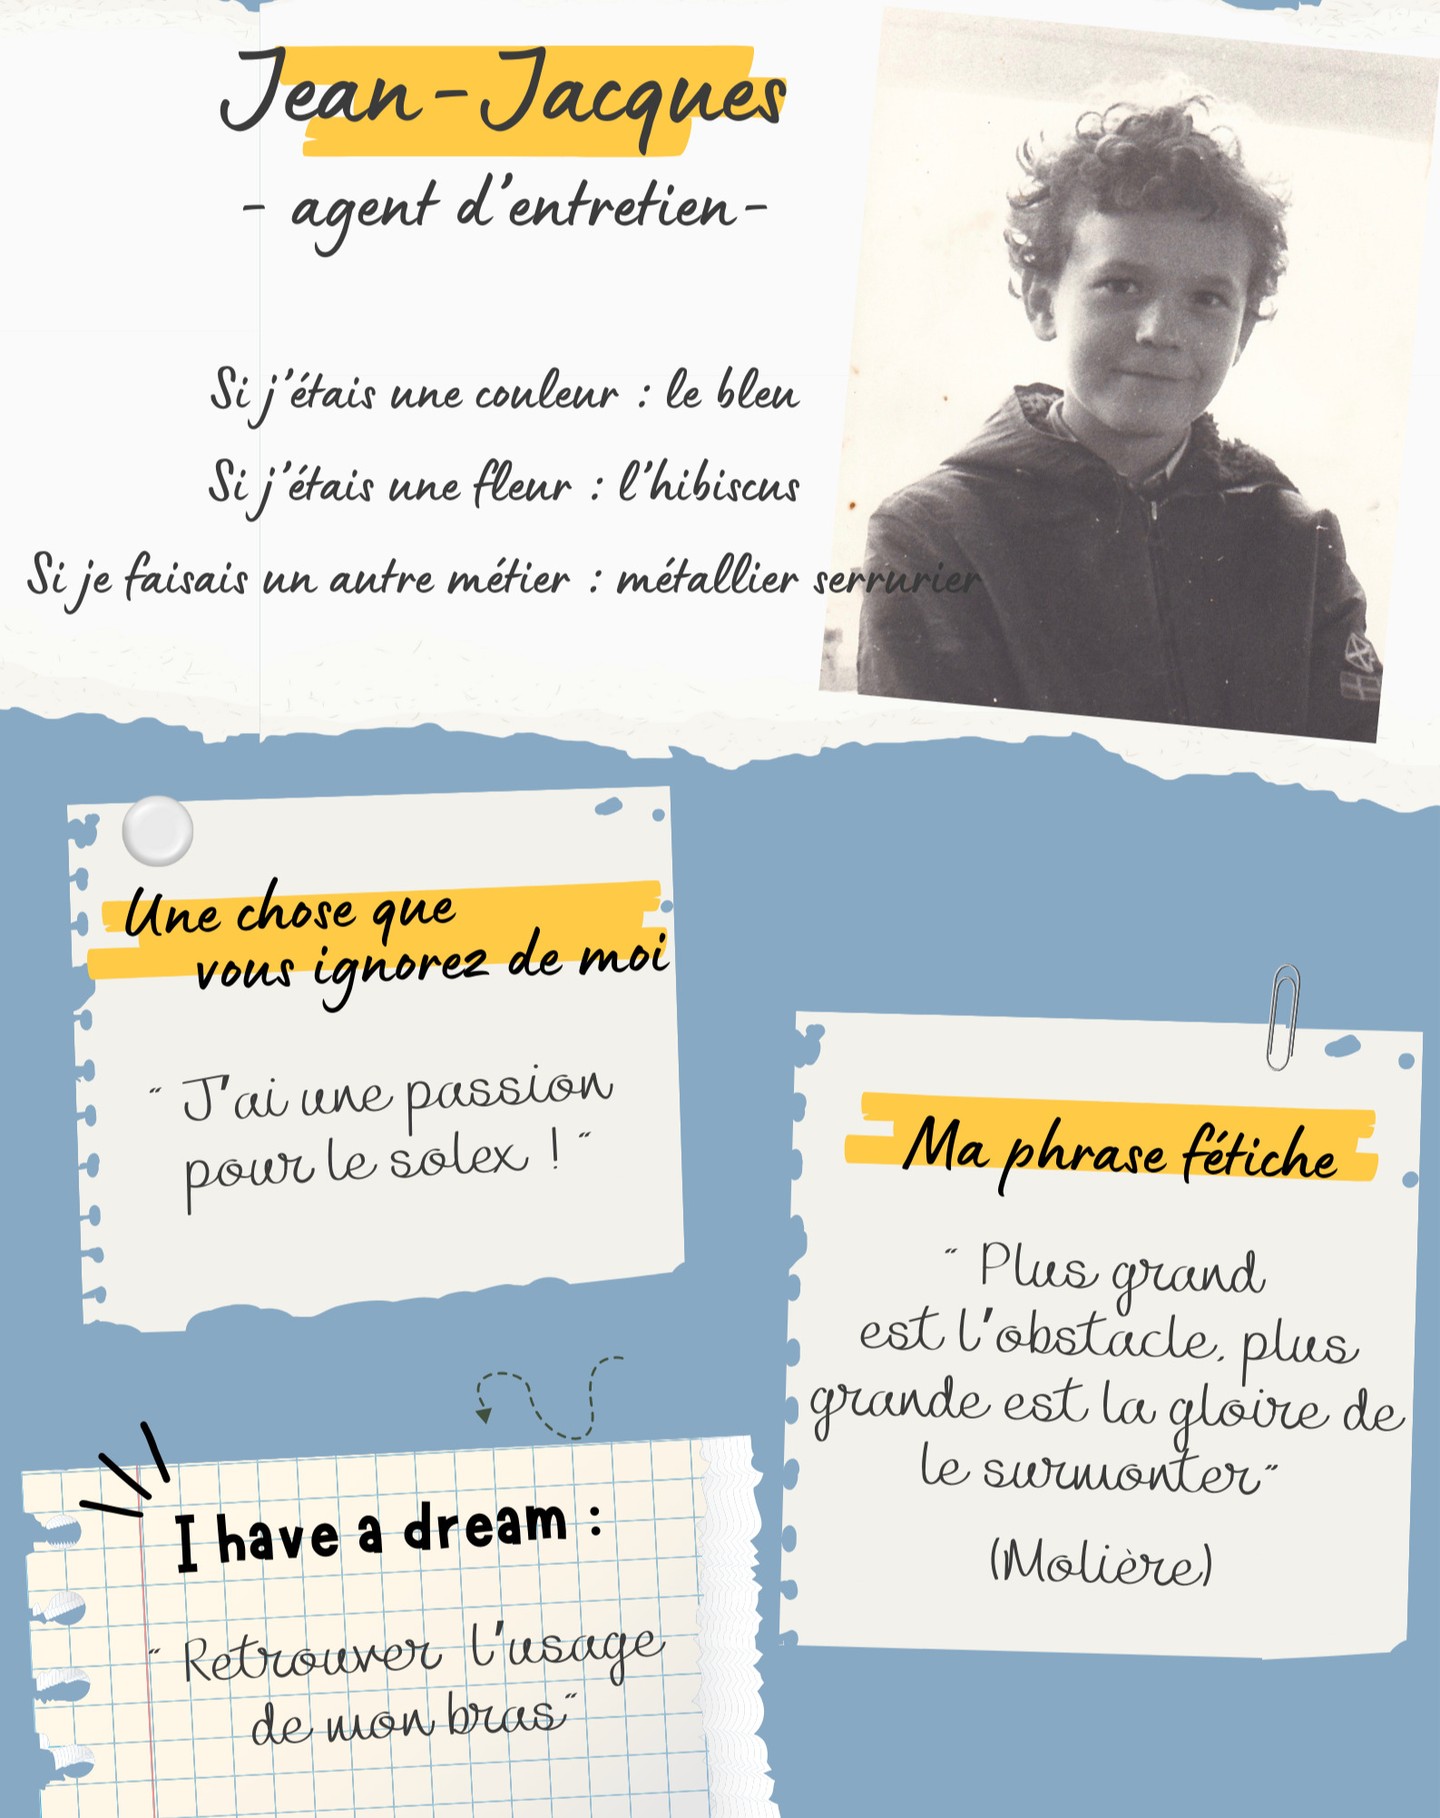 Jean-Jacques
- agent d'entretien-
Si j'étais une couleur : le bleu
Si j'étais une fleur : l'hibiscus
Si je faisais un autre métier : métallier serrurier
Une chose que
vous ignorez de moi
" J'ai une passion
pour le solex ! "
Ma phrase fétiche
" Plus grand
est l'obstacle, plus
grande est la gloire de
le surmonter"
(Molière)
I have a dream :
" Retrouver l'usage
de mon bras"